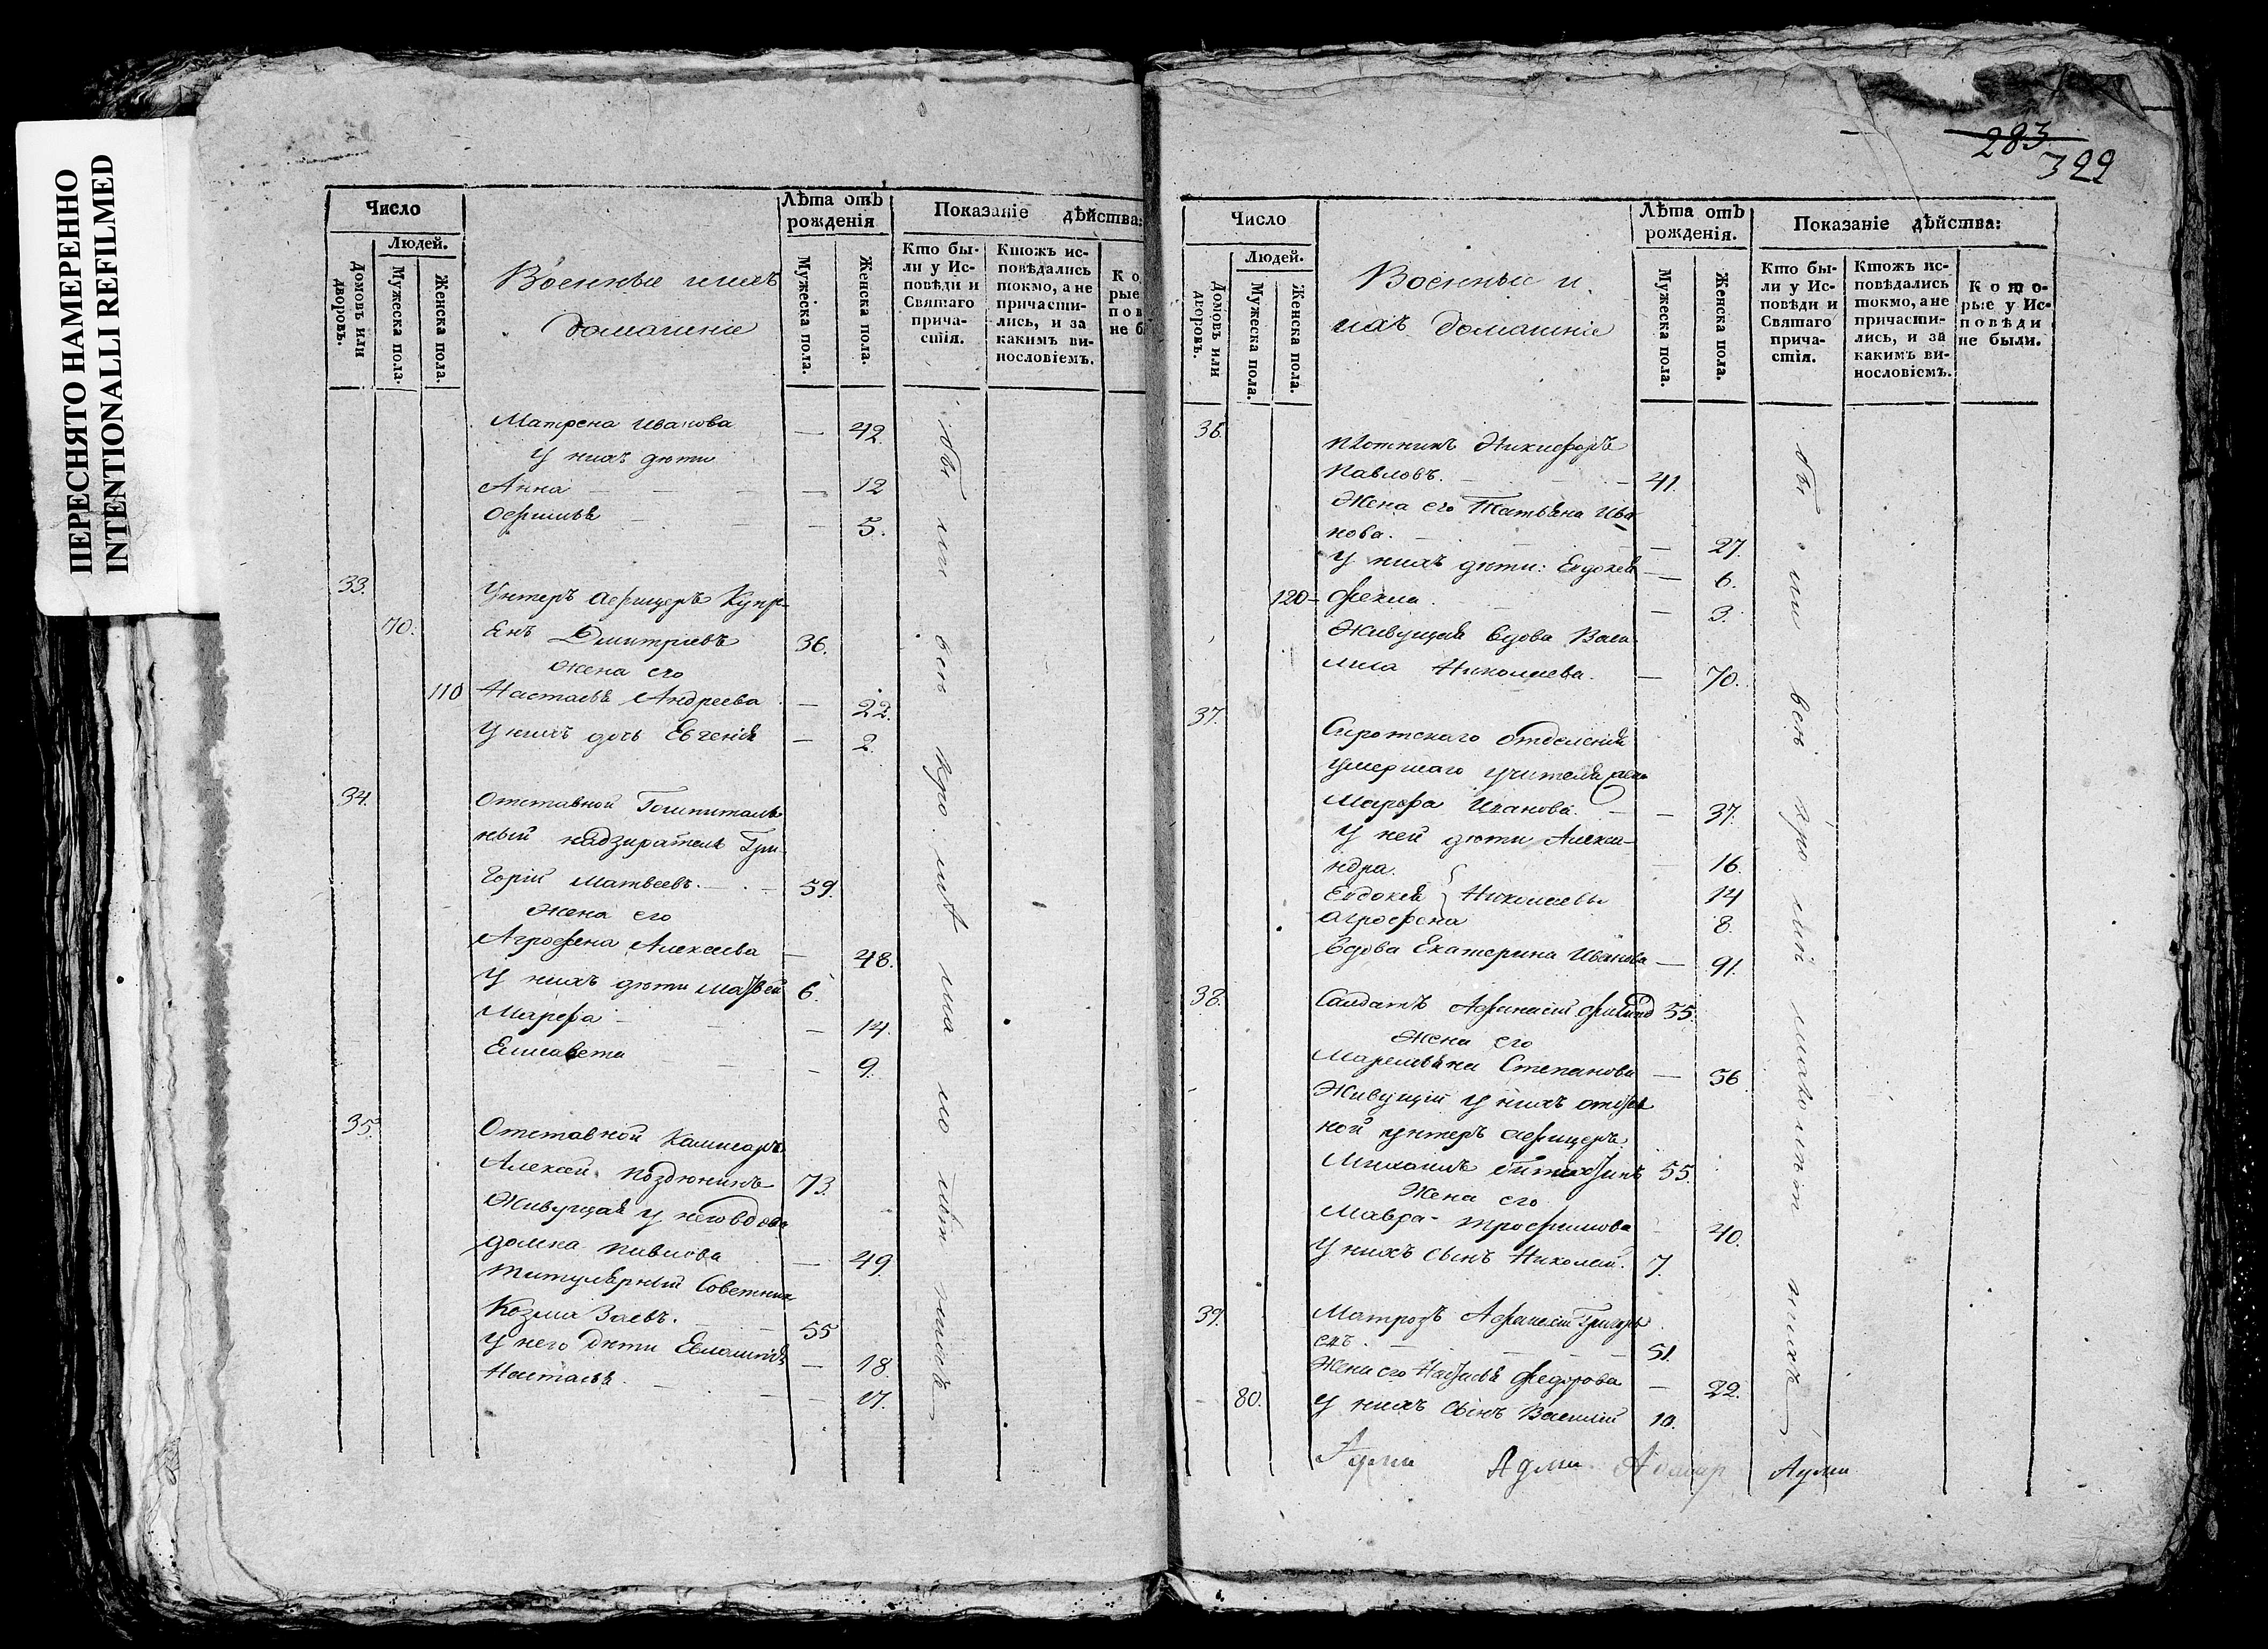 ПЕРЕСНЯТО НАМЕРЕННО
INTENTIONALLI REFILMED
Число
Людей.
Домовъ или дворовъ.
Мужеска пола.
Женска пола.
Военные и ихъ
домашніе
Лѣта отъ рожденія
Мужеска пола.
Женска пола.
Показаніе дѣйства:
Кто бы-
ли у Ис-
повѣди и
Святаго
прича-
стія.
Ктожъ ис-
повѣдались
токмо, а не
причасти-
лись, и за
какимъ ви-
нословіемъ.
Ко
рые
пов
не б
Матрена Иванова — 42.
У нихъ дѣти
Анна — 12
Офимья — 5.
33. Унтеръ афицеръ Купр-
70. янъ Дмитріевъ 36.
жена его
110 Настасья Андреева — 22.
У нихъ дочь Евгенія — 2.
34. Отставной Гошпиталь
ный надзиратель Гри-
горій Матвеевъ. — 59.
жена его
Агрофена Алексеева — 48.
У нихъ дѣти Матвей 6.
Марфа — 14.
Елисавета — 9.
35. Отставной Камисаръ
Алексей Поздюнинъ 73.
Живущая у него вдова
домна Павлова — 49.
Титулярный Советник
Козма Заевъ. 55
У него дѣти Евлампія — 18.
Настасья. — 17.
283
322
Число
Людей.
Домовъ или дворовъ.
Мужеска пола.
Женска пола.
Военные и.
ихъ домашніе
Лѣта отъ рожденія.
Мужеска пола.
Женска пола.
Показаніе дѣйства:
Кто бы-
ли у Ис-
повѣди и
Святаго
прича-
стія.
Ктожъ ис-
повѣдались
токмо, а не
причасти-
лись, и за
какимъ ви-
нословіемъ.
Кото-
рые у Ис-
повѣди
не были.
36. Плотникъ Никифоръ
Павловъ. — 41.
Жена его Татьяна Ива
нова. — 27.
У нихъ дѣти: Евдокея — 6.
120 Фекла. — 3.
Живущая вдова Васи
лиса Николаева. — 70.
37. Сиротскаго отделенія
умершаго учителя жена
Марфа Иванова. — 37.
У ней дѣти Алекса-
ндра. 16.
Евдокея } Николаевы 14
Агрофена 8.
вдова Екатерина Иванова — 91.
38. Салдатъ Афанасій 55.
Жена его
Маремьяна Степанова — 56
Живущій у нихъ отстав
ной унтеръ афицеръ
Михаилъ 55.
Жена его
Мавра Трофимова 40.
У нихъ сынъ Николай. 7.
39. Матрозъ Афанасій Григорь
евъ. — 51.
Жена его Настасья Федорова — 22.
80. У нихъ сынъ Василій 10.